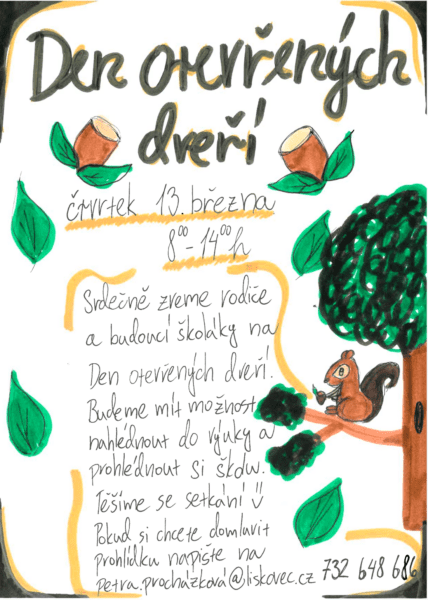 Den otevřených
dveří
čtvrtek 13. března
8⁰⁰-14⁰⁰h
Srdečně zveme rodiče
a budoucí školáky na
Den otevřených dveří.
Budeme mít možnost
nahlédnout do výuky a
prohlédnout si školu.
Těšíme se setkání ü
Pokud si chcete domluvit
prohlídku napište na
petra.procházková@liskovec.cz 732 648 686